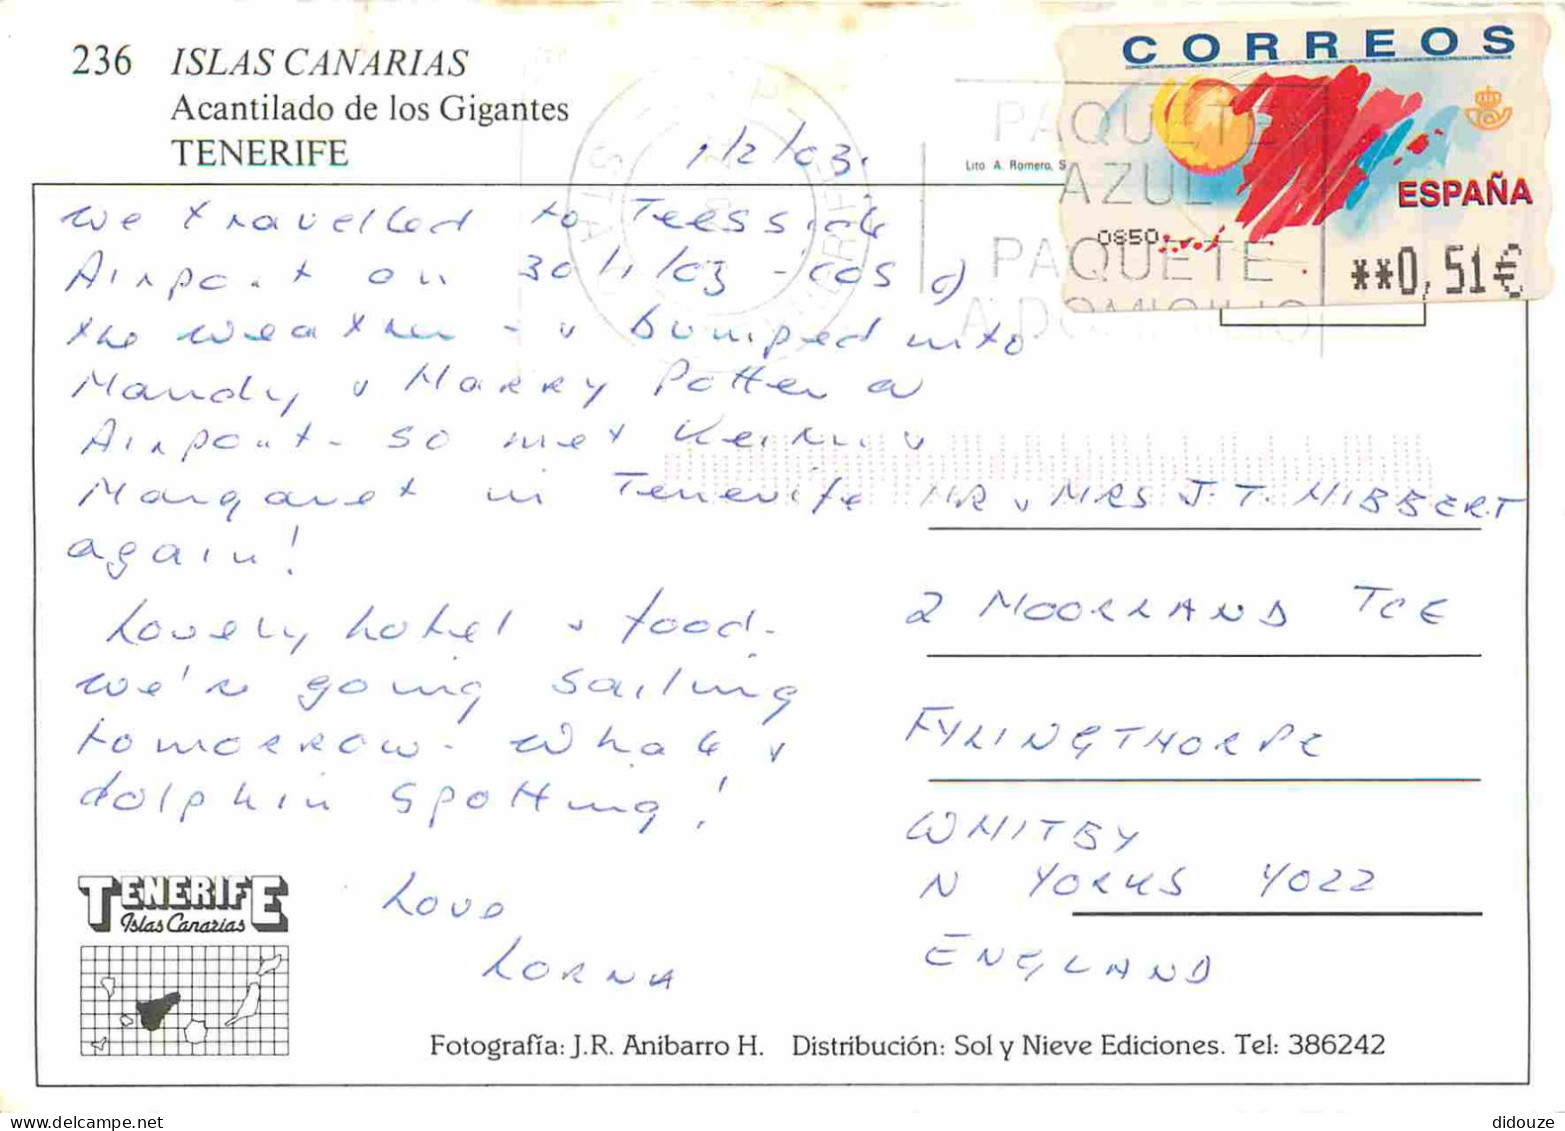 236 ISLAS CANARIAS
Acantilado de los Gigantes
TENERIFE
CORREOS
ESPAÑA
0850
**0,51€
PAQUETE
AZUL
PAQUETE
A DOMICILIO
Lito A. Romero, S
1/2/03.
We travelled to Teesside
Airport on 30/1/03 - cos of
the weather - & bumped into
Mandy & Harry Potter @
Airport - so met Keith &
Margaret in Tenerife
again!
Lovely hotel & food.
We're going sailing
tomorrow - whale &
dolphin spotting!
Love
LORNA
MR & MRS J.T. HIBBERT
2 MOORLAND TCE
FYLINGTHORPE
WHITBY
N YORKS YO22
ENGLAND
TENERIFE
Islas Canarias
Fotografía: J.R. Anibarro H. Distribución: Sol y Nieve Ediciones. Tel: 386242
didouze